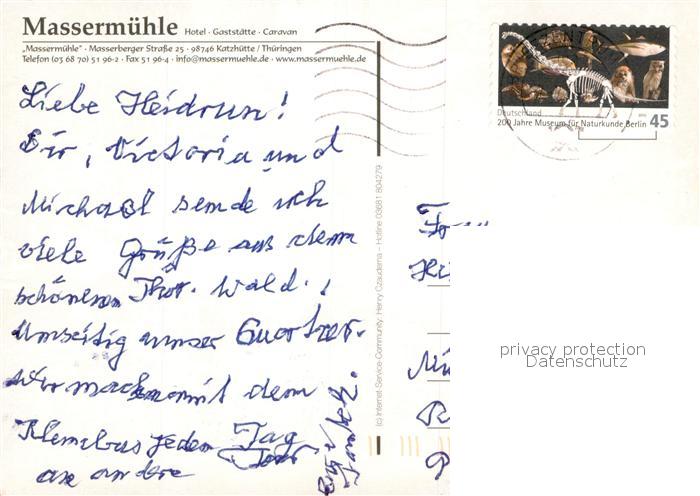 Massermühle Hotel · Gaststätte · Caravan
„Massermühle" · Masserberger Straße 25 · 98746 Katzhütte / Thüringen
Telefon (03 68 70) 51 96-2 · Fax 51 96-4 · info@massermuehle.de · www.massermuehle.de
Liebe Heidrun!
Dir, Victoria und
Michael sende ich
viele Grüße aus dem
schönen Thür. Wald.!
Umseitig unser Quartier.
Wir machen mit dem
Kleinbus jeden Tag
eine andere Tour
(c) Internet Service-Community, Henry Czauderna – Hotline 03681 804279
Deutschland
200 Jahre Museum für Naturkunde Berlin 45
privacy protection
Datenschutz